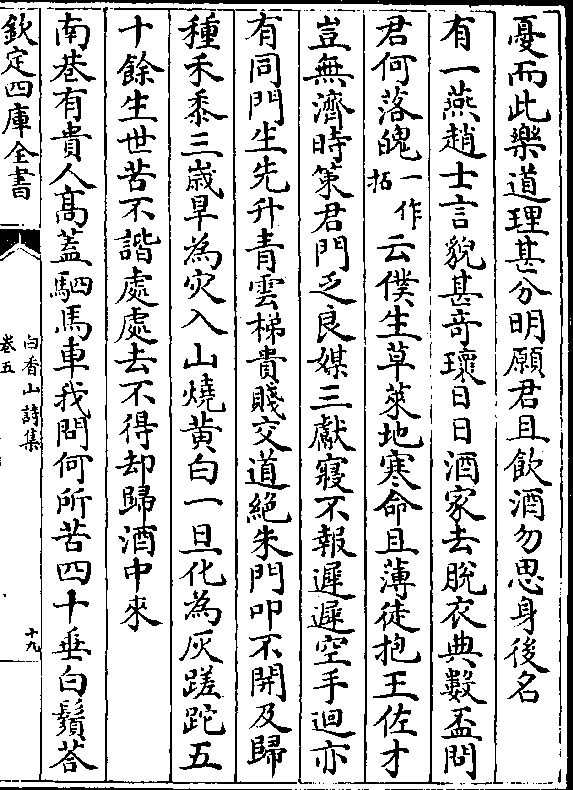 憂而此樂道理甚分明願君且飲酒勿思身後名
有一燕趙士言貌甚竒瓌日日酒家去脫衣典數盃問
君何落魄一作拓云僕生草萊地寒命且薄徒抱王佐才
豈無濟時策君門乏良媒三獻寢不報遲遲空手迴亦
有同門生先升青雲梯貴賤交道絕朱門叩不開及歸
種禾黍三嵗旱為灾入山燒黃白一旦化為灰蹉跎五
十餘生世苦不諧處處去不得却歸酒中來
南巷有貴人髙蓋駟馬車我問何所苦四十垂白鬚荅
欽定四庫全書
白香山詩集
卷五
十九